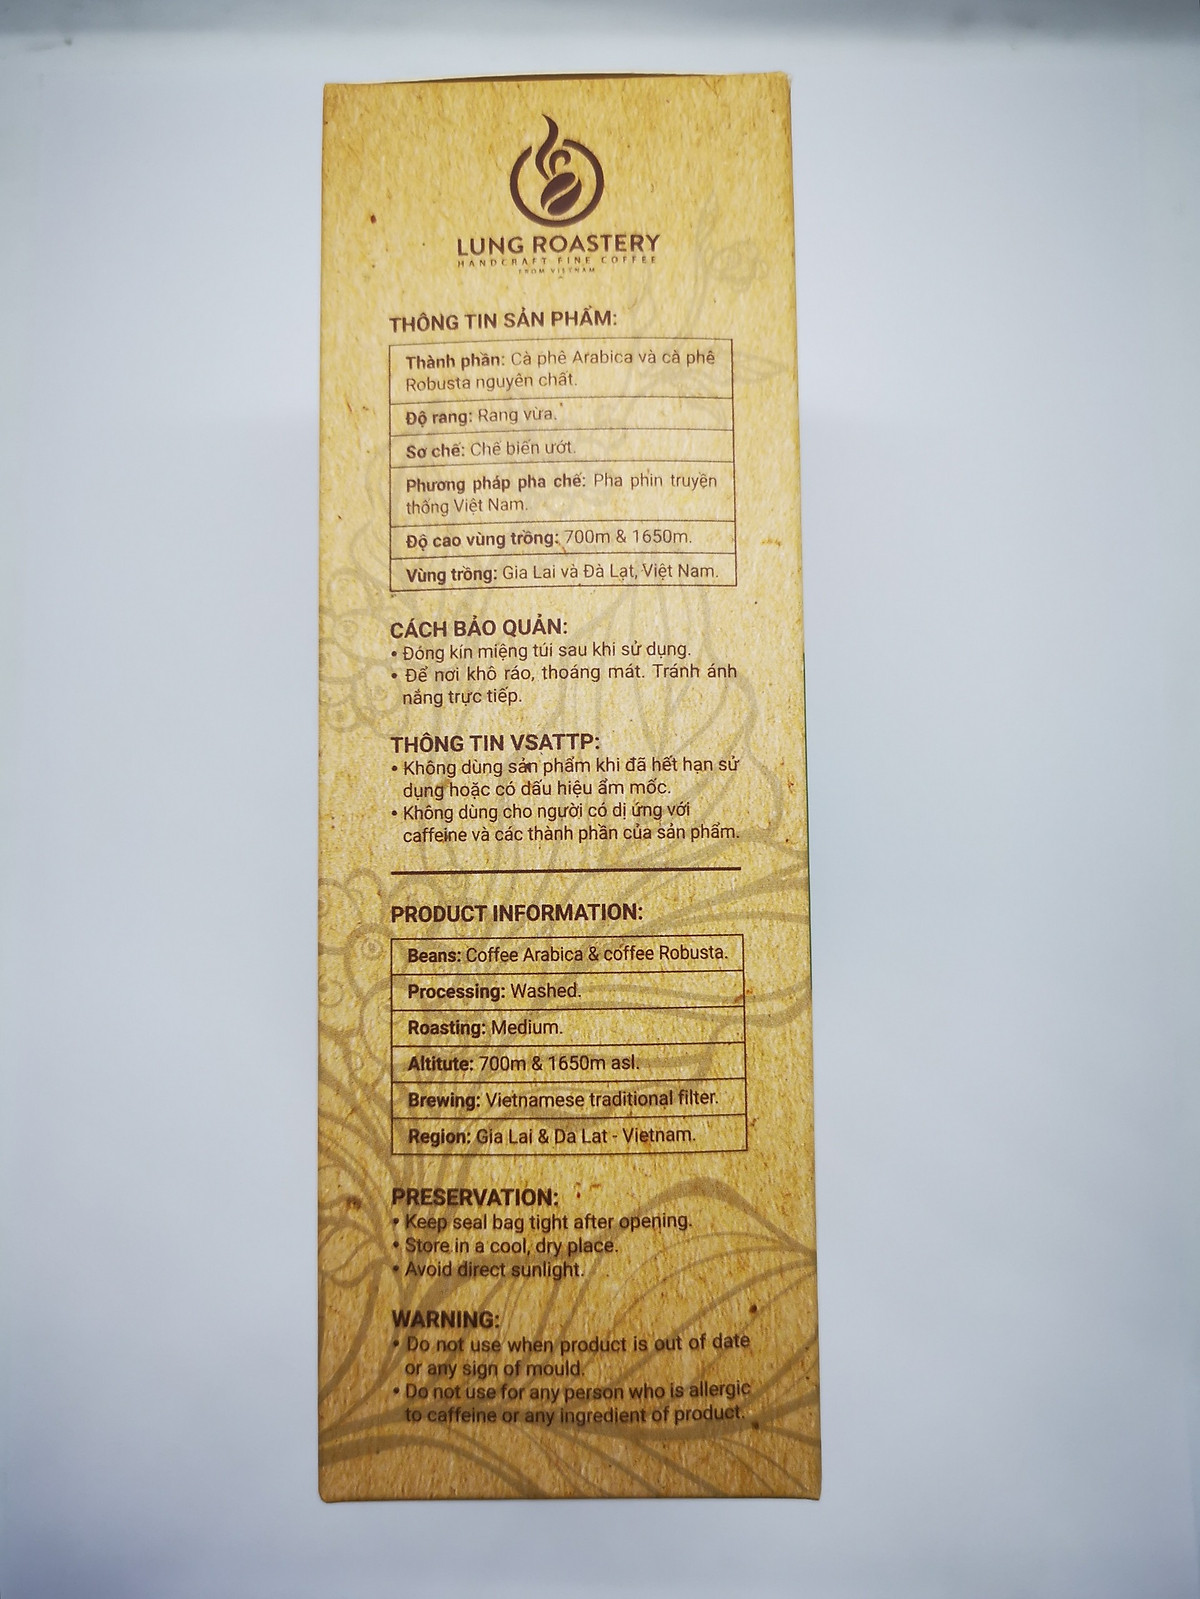 LUNG ROASTERY
HANDCRAFT FINE COFFEE
FROM VIETNAM
THÔNG TIN SẢN PHẨM:
Thành phần: Cà phê Arabica và cà phê
Robusta nguyên chất.
Độ rang: Rang vừa.
Sơ chế: Chế biến ướt.
Phương pháp pha chế: Pha phin truyền
thống Việt Nam.
Độ cao vùng trồng: 700m & 1650m.
Vùng trồng: Gia Lai và Đà Lạt, Việt Nam.
CÁCH BẢO QUẢN:
• Đóng kín miệng túi sau khi sử dụng.
• Để nơi khô ráo, thoáng mát. Tránh ánh
nắng trực tiếp.
THÔNG TIN VSATTP:
• Không dùng sản phẩm khi đã hết hạn sử
dụng hoặc có dấu hiệu ẩm mốc.
• Không dùng cho người có dị ứng với
caffeine và các thành phần của sản phẩm.
PRODUCT INFORMATION:
Beans: Coffee Arabica & coffee Robusta.
Processing: Washed.
Roasting: Medium.
Altitute: 700m & 1650m asl.
Brewing: Vietnamese traditional filter.
Region: Gia Lai & Da Lat - Vietnam.
PRESERVATION:
• Keep seal bag tight after opening.
• Store in a cool, dry place.
• Avoid direct sunlight.
WARNING:
• Do not use when product is out of date
or any sign of mould.
• Do not use for any person who is allergic
to caffeine or any ingredient of product.